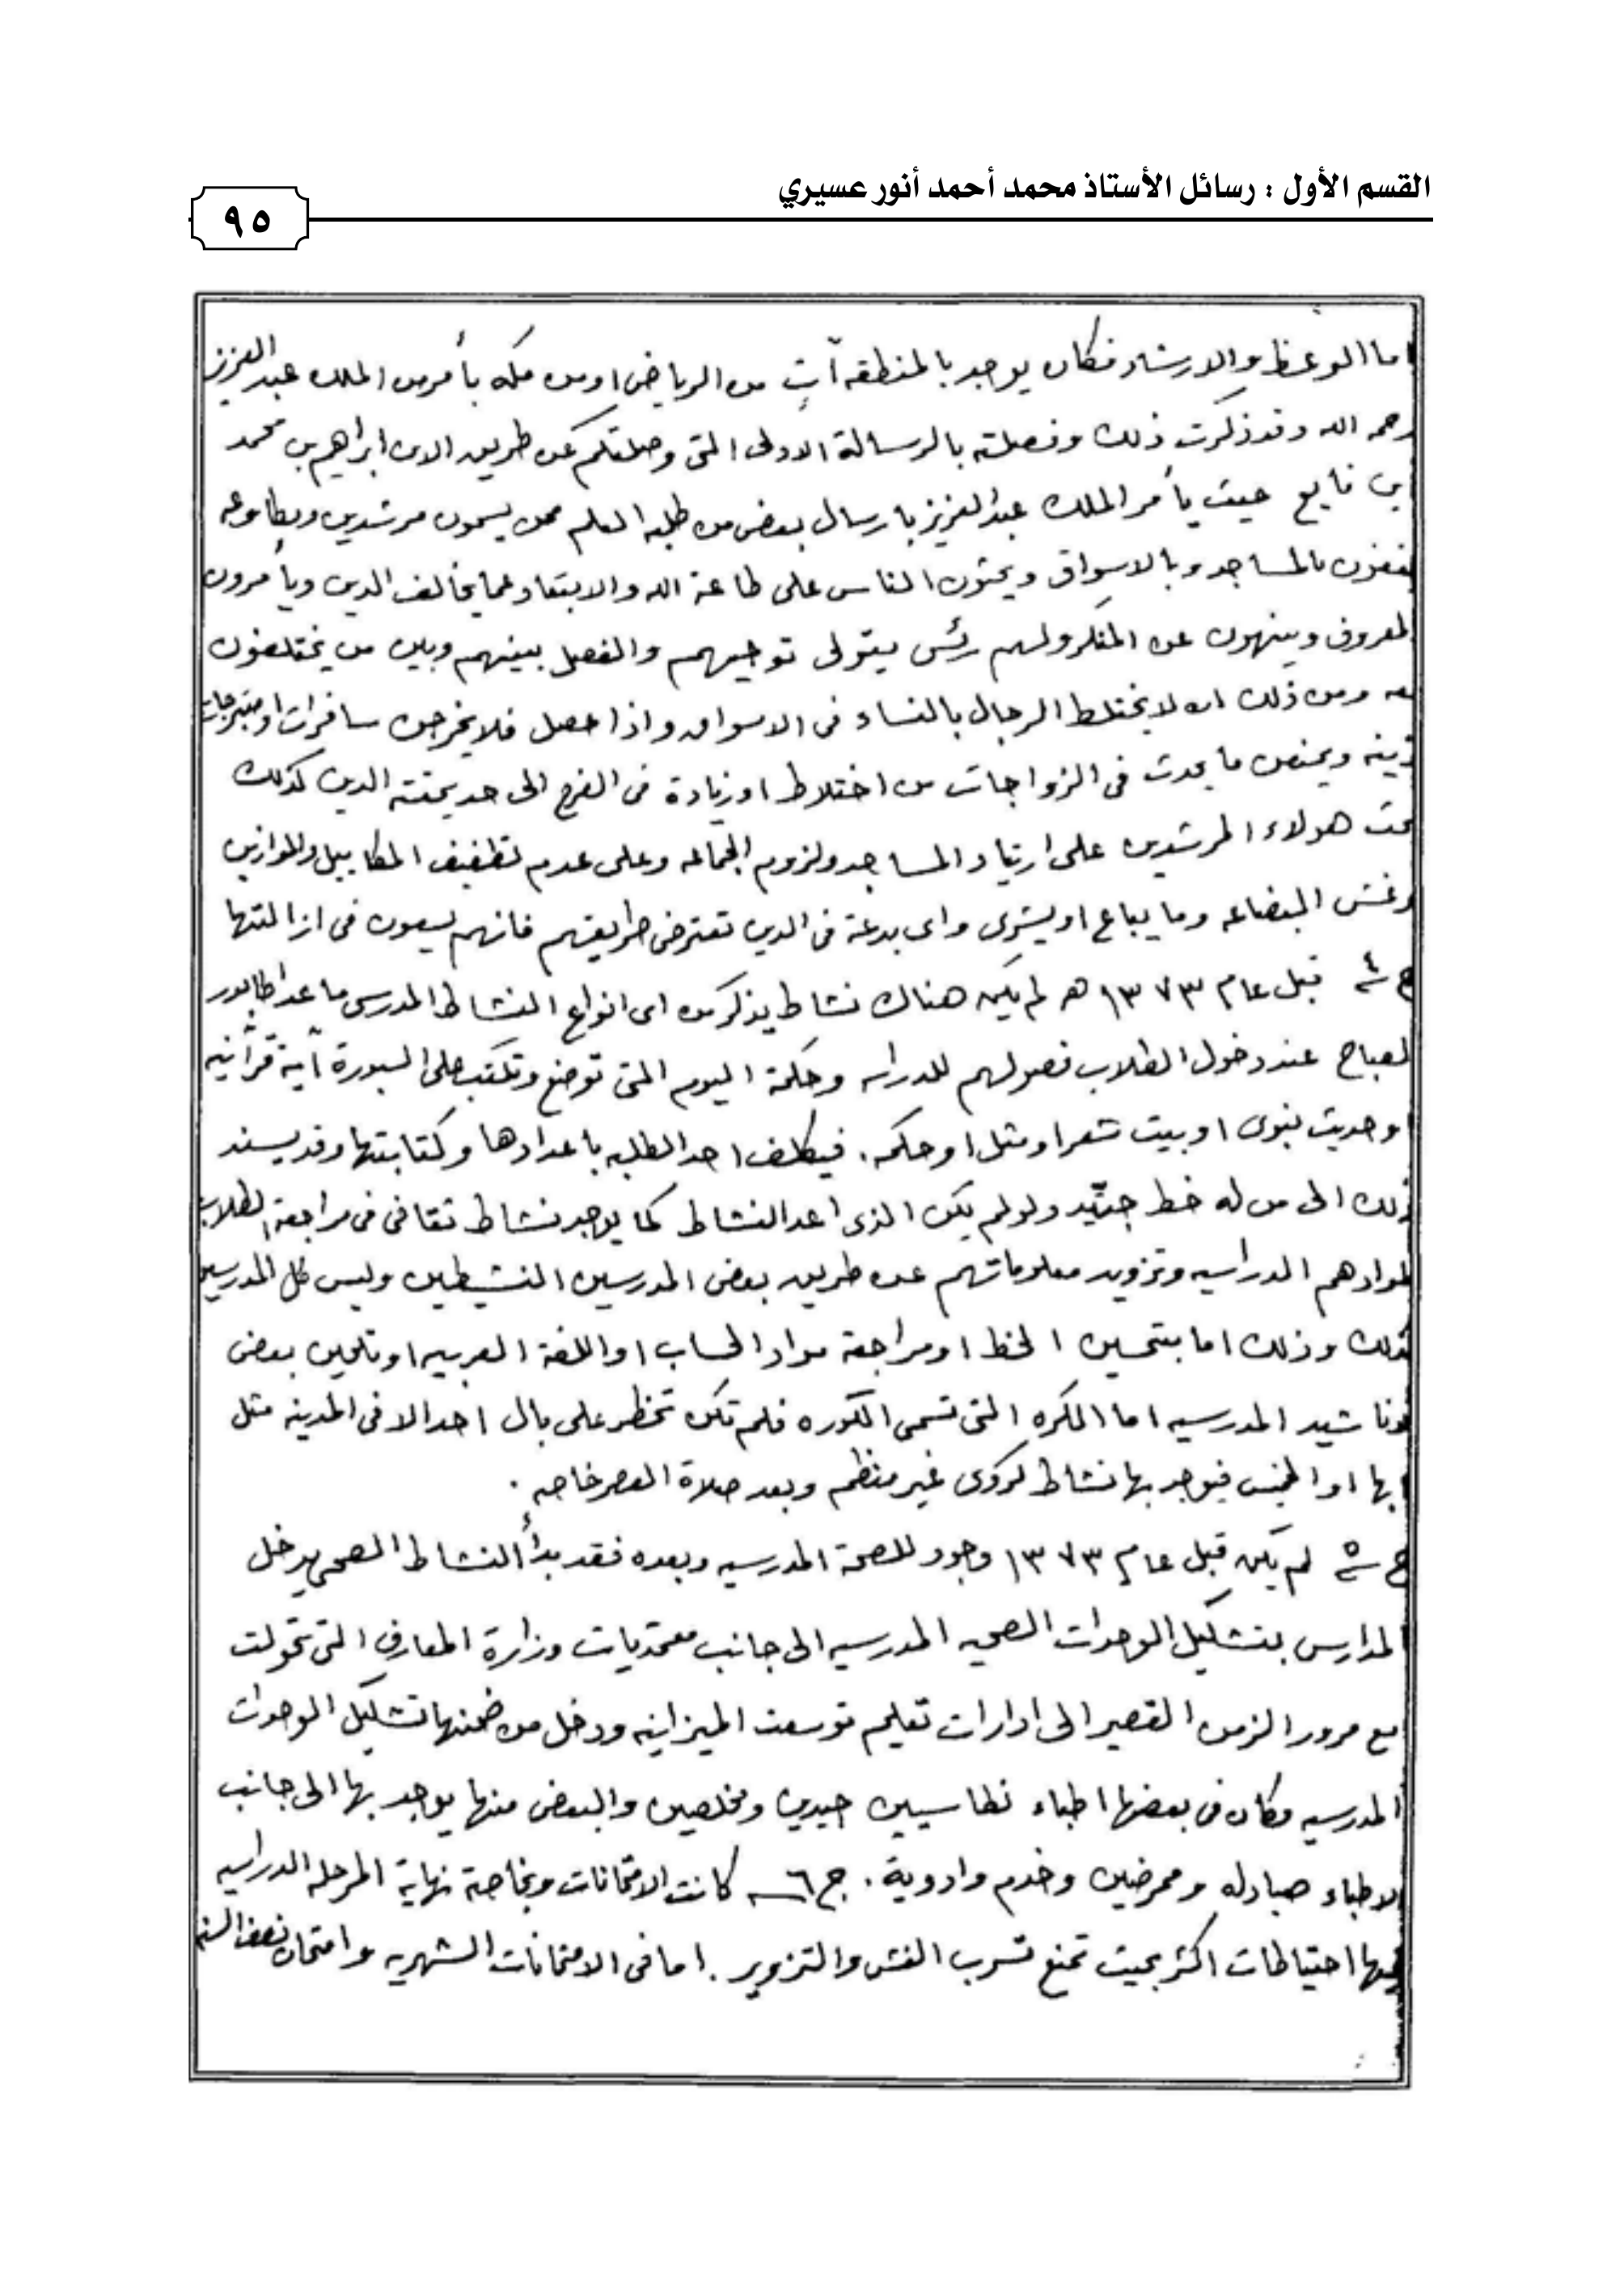 القسم الأول : رسائل الأستاذ محمد أحمد أنور عسيري
٩٥
اما الوعظ والارشاد فكان يوجد بالمنطقه آتٍ من الرياض او من مكه بأمر من الملك عبد العزيز
رحمه الله وقد ذكرت ذلك وفصلته بالرسالة الاولى التى وصلتكم عن طريق الابن ابراهيم بن محمد
بن فايع حيث يأمر الملك عبد العزيز بارسال بعض من طلبه العلم ممن يسمون مرشدين ومطاوعه
يقفون بالمساجد وبالاسواق ويحثون الناس على طاعة الله والابتعاد عما يخالف الدين ويأمرون
لمعروف وينهون عن المنكر ولهم رئس يتولى توجيههم والفصل بينهم وبين من يختلفون
معه ومن ذلك ان لا يختلط الرجال بالنساء فى الاسواق واذا حصل فلا يخرجن سافرات او متبرجات
زينه ويمنعن ما يحدث فى الزواجات من اختلاط او زيادة فى الفرح الى حد يمقته الدين كذلك
يحث هولاء المرشدين على ارتياد المساجد ولزوم الجماعه وعلى عدم تطفيف المكاييل والموازين
وغش البضاعه وما يباع او يشترى واى بدعة فى الدين تعترض طريقهم فانهم يسعون فى ازالتها
ج ٤ قبل عام ١٣٧٣ هـ لم يكن هناك نشاط يذكر من اى انواع النشاط المدرسى ما عدا طابور
لصباح عند دخول الطلاب فصولهم للدراسه وحكمة اليوم التى توضع وتكتب على السبورة آية قرآنيه
او حديث نبوى او بيت شعر او مثل او حكمه. فيكلف احد الطلبه باعدادها وكتابتها وقد يسند
ذلك الى من له خط جيّد ولو لم يكن الذى اعد النشاط كما يوجد نشاط ثقافى فى مراجعة الطلاب
لموادهم الدراسيه وتزويد معلوماتهم عن طريق بعض المدرسين النشيطين وليس كل المدرسين
كذلك وذلك اما بتحسين الخط او مراجعة مواد الحساب او اللغة العربيه او تلحين بعض
ونا شيد المدرسيه اما الكره التى تسمى الكوره فلم تكن تخطر على بال احد الا فى المدينه مثل
ابها او الخميس فيوجد بها نشاط كروى غير منظم وبعد صلاة العصر خاصه.
ج ٥ لم يكن قبل عام ١٣٧٣ وجود للصحة المدرسيه وبعده فقد بدأ النشاط الصحى يدخل
المدارس بتشكيل الوحدات الصحيه المدرسيه الى جانب معتمديات وزارة المعارف التى تحولت
مع مرور الزمن القصير الى ادارات تعليم توسعت الميزانيه ودخل من ضمنها تشكيل الوحدات
المدرسيه فكان فى بعضها اطباء نطاسيين جيدين ومخلصين والبعض منها يوجد بها الى جانب
الاطباء صيادله وممرضين وخدم وادوية. ج ٦ كانت الامتحانات وبخاصة نهاية المرحله الدراسيه
احتياطات اكثر بحيث تمنع تسرب الغش والتزوير. اما فى الامتحانات الشهريه وامتحان نصف السنه